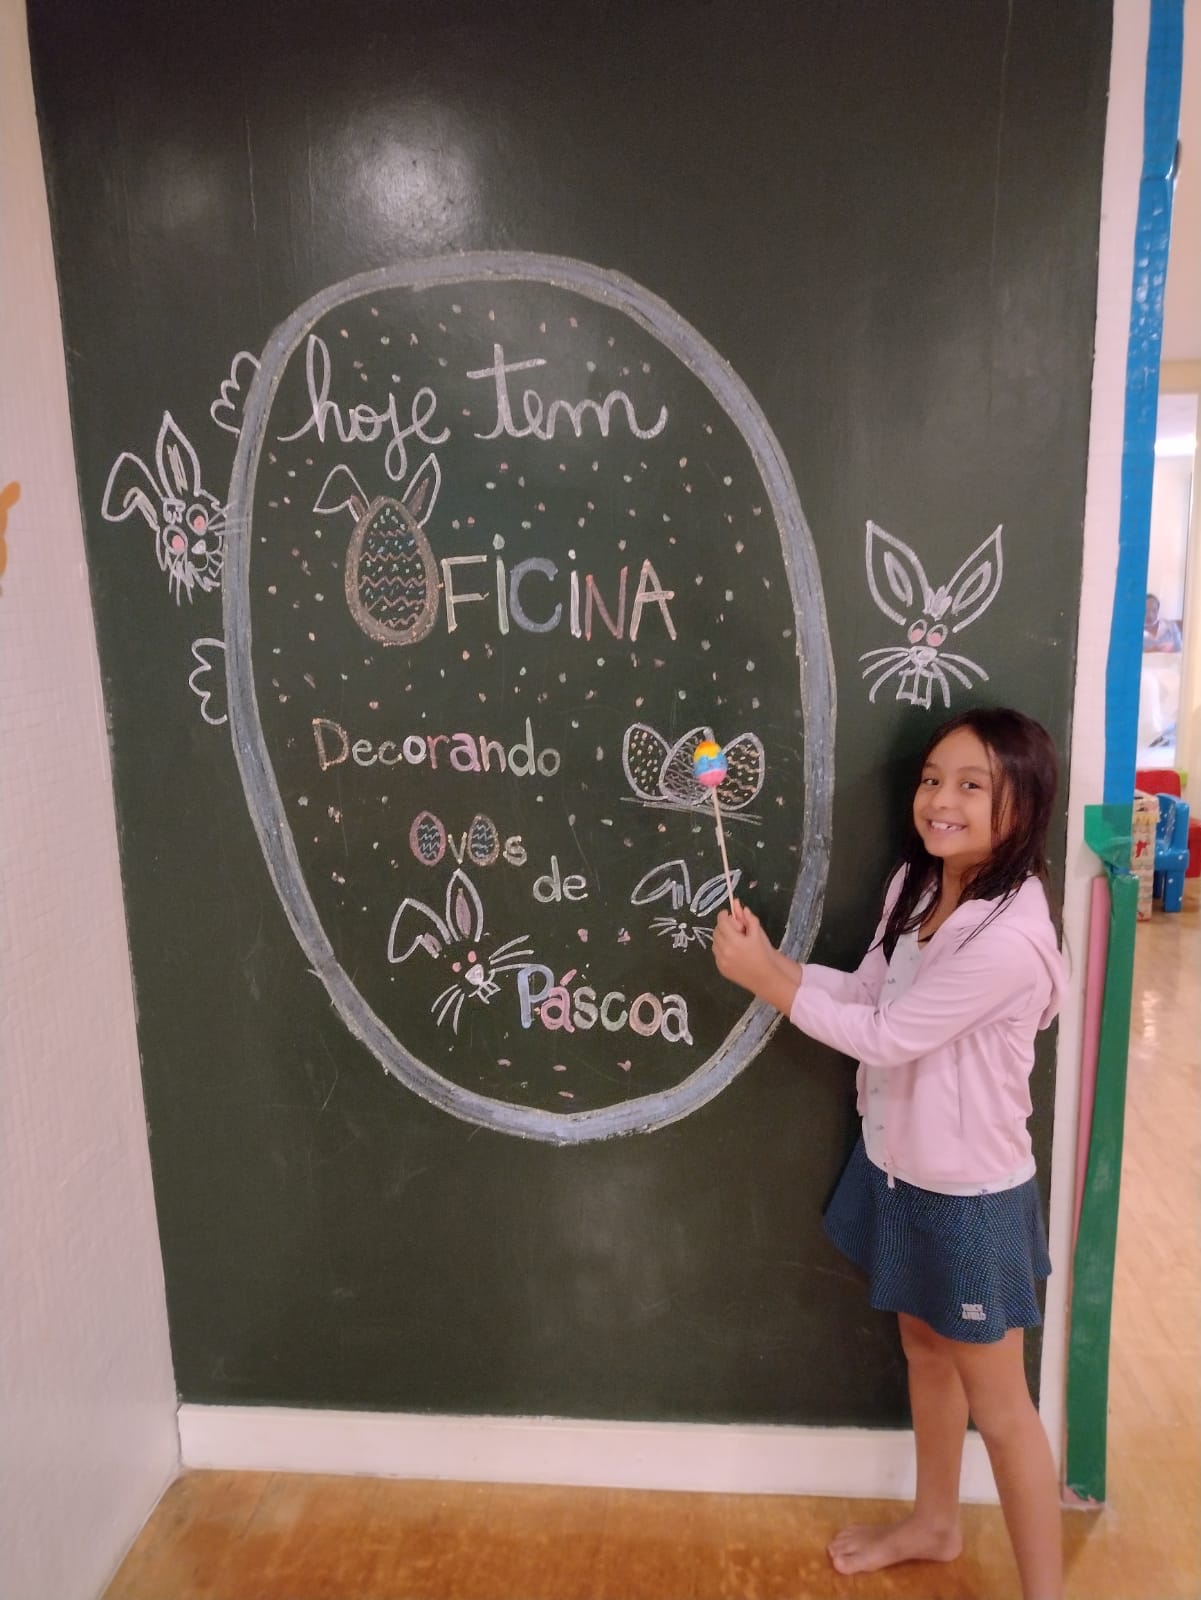 hoje tem
OFICINA
Decorando
Ovos
de
Páscoa